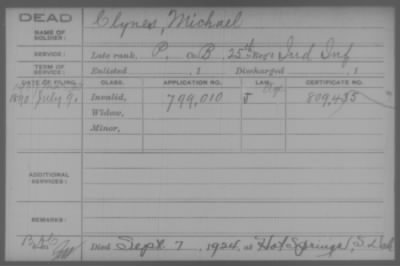 DEAD
NAME OF SOLDIER:
Clynes, Michael
SERVICE:
Late rank, P. Co B, 25th Reg't Ind Inf
TERM OF SERVICE:
Enlisted , 1 Discharged , 1
DATE OF FILING. CLASS. APPLICATION NO. LAW. CERTIFICATE NO.
1890 July 9. Invalid, 799,010 J 809,435
Widow,
Minor,
ADDITIONAL SERVICES:
REMARKS:
Died Sept 7, 1924, at Hot Springs, S. Dak